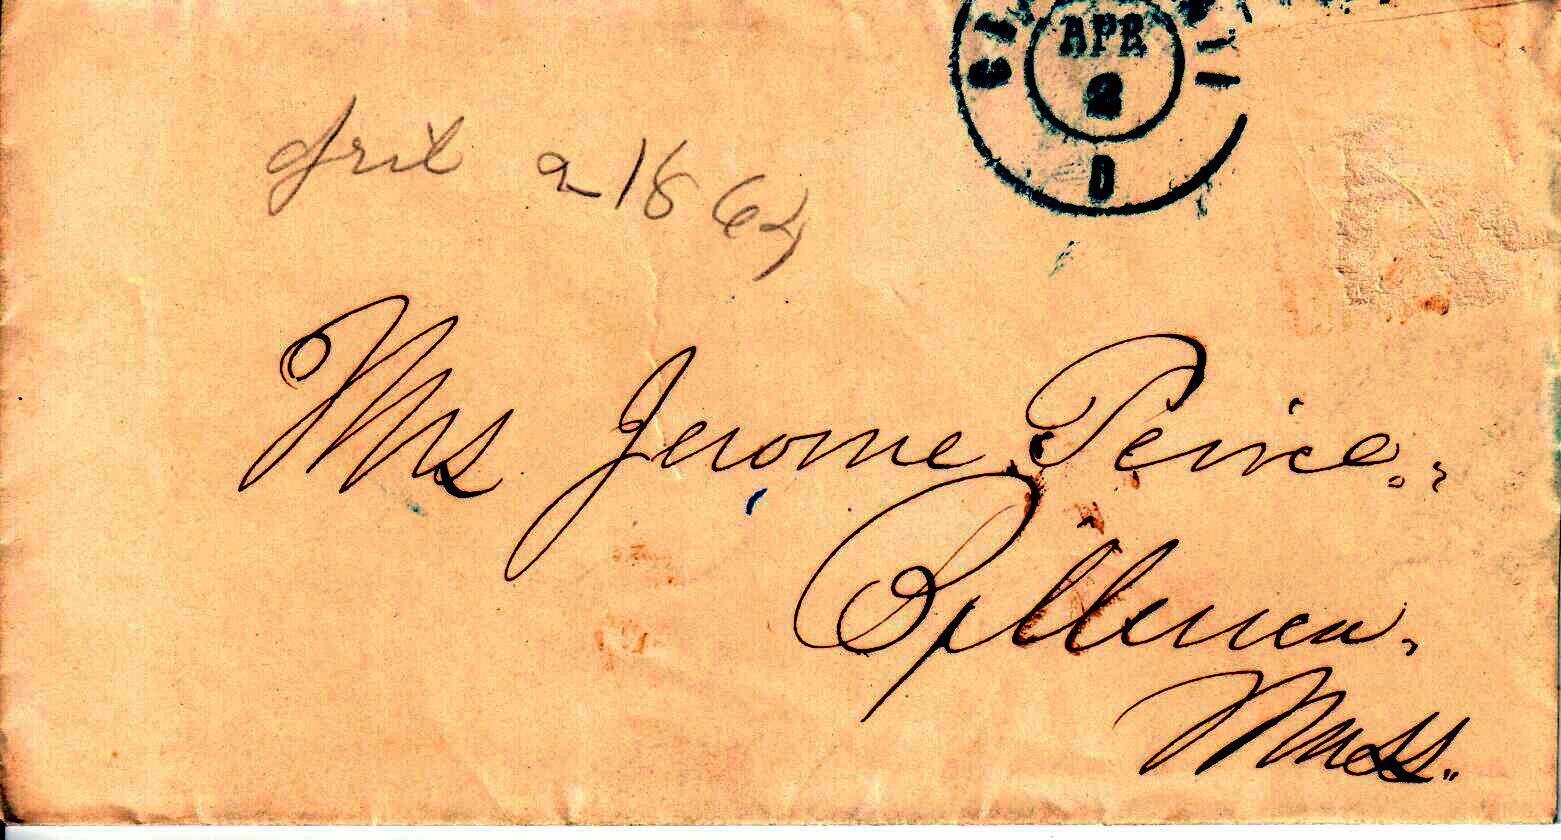 APR
2
D
April 2 1864
Mrs Jerome Peirce.,
Billerica,
Mass.